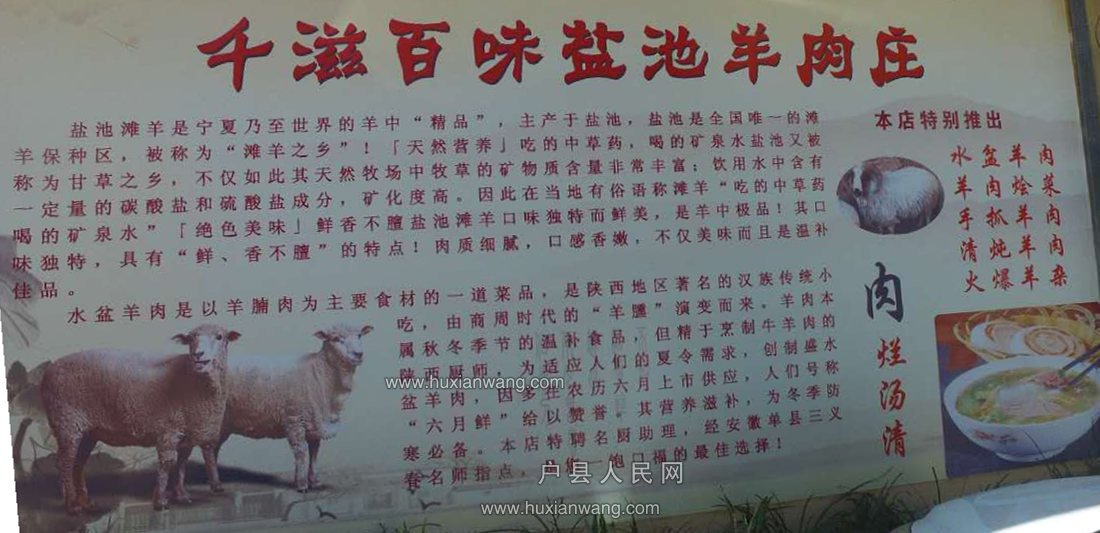 千滋百味盐池羊肉庄
盐池滩羊是宁夏乃至世界的羊中“精品”，主产于盐池，盐池是全国唯一的滩
羊保种区，被称为“滩羊之乡”！「天然营养」吃的中草药，喝的矿泉水盐池又被
称为甘草之乡，不仅如此其天然牧场中牧草的矿物质含量非常丰富；饮用水中含有
一定量的碳酸盐和硫酸盐成分，矿化度高。因此在当地有俗语称滩羊“吃的中草药
喝的矿泉水”「绝色美味」鲜香不膻盐池滩羊口味独特而鲜美，是羊中极品！其口
味独特，具有“鲜、香不膻”的特点！肉质细腻，口感香嫩，不仅美味而且是温补
佳品。
水盆羊肉是以羊腩肉为主要食材的一道菜品，是陕西地区著名的汉族传统小
吃，由商周时代的“羊臐”演变而来。羊肉本
属秋冬季节的温补食品，但精于烹制牛羊肉的
陕西厨师，为适应人们的夏令需求，创制盛水
盆羊肉，因多在农历六月上市供应，人们号称
“六月鲜”给以赞誉。其营养滋补，为冬季防
寒必备。本店特聘名厨助理，经安徽单县三义
春名师指点，为您一饱口福的最佳选择！
本店特别推出
水盆羊肉
羊肉烩菜
手抓羊肉
清炖羊肉
火爆羊杂
肉烂汤清
www.huxianwang.com
www.huxianwang.com
户县人民网
www.huxianwang.com